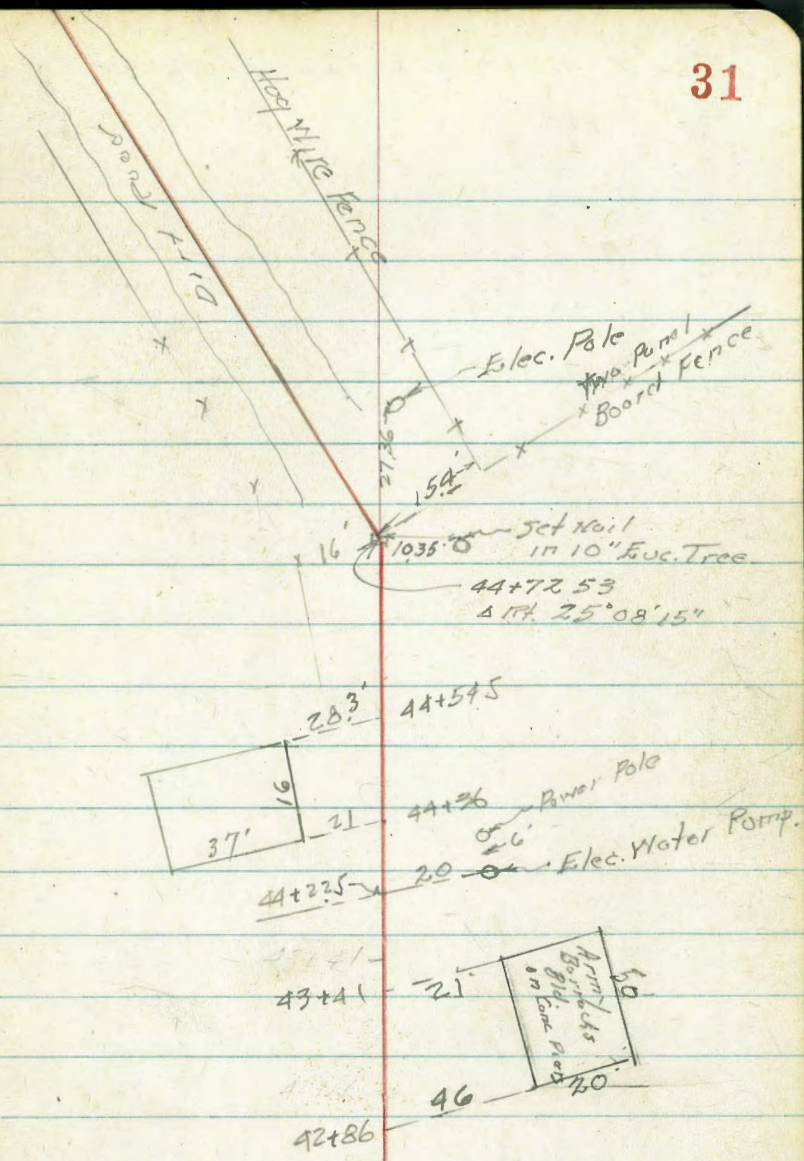 31
Hog Wire Fence
Dirt Road
Elec. Pole
Two Panel
Board Fence
27.36
15.4'
Set Nail
in 10" Euc. Tree
16'
10.35
44+72.53
Δ Rt. 25°08'15"
28.3'
44+54.5
16
21
44+36
37'
Power Pole
6'
20
Elec. Water Pump.
44+22.5
43+41
21'
Army
Barracks
Bld.
on Conc Piers
60
20'
46
42+86